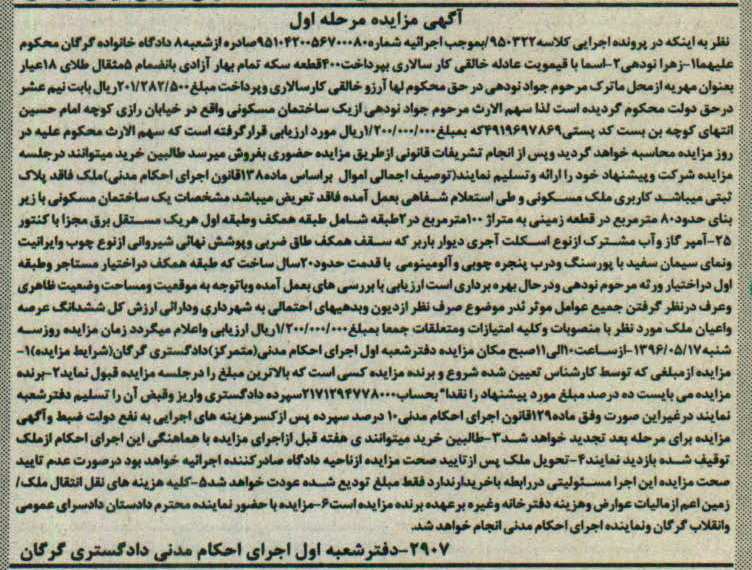 آگهی مزایده مرحله اول
نظر به اینکه در پرونده اجرایی کلاسه۹۵۰۳۲۲/بموجب اجرائیه شماره۹۵۱۰۴۲۰۰۵۶۷۰۰۰۸۰صادره ازشعبه۸ دادگاه خانواده گرگان محکوم
علیهما۱-زهرا نودهی۲-اسما با قیمویت عادله خالقی کار سالاری بپرداخت۴۰۰قطعه سکه تمام بهار آزادی بانضمام ۵مثقال طلای ۱۸عیار
بعنوان مهریه ازمحل ماترک مرحوم جواد نودهی در حق محکوم لها آرزو خالقی کارسالاری وپرداخت مبلغ۲۰۱/۲۸۲/۵۰۰ریال بابت نیم عشر
درحق دولت محکوم گردیده است لذا سهم الارث مرحوم جواد نودهی ازیک ساختمان مسکونی واقع در خیابان رازی کوچه امام حسین
انتهای کوچه بن بست کد پستی۴۹۱۹۶۹۷۸۶۹که بمبلغ۱/۲۰۰/۰۰۰/۰۰۰ریال مورد ارزیابی قرارگرفته است که سهم الارث محکوم علیه در
روز مزایده محاسبه خواهد گردید وپس از انجام تشریفات قانونی ازطریق مزایده حضوری بفروش میرسد طالبین خرید میتوانند درجلسه
مزایده شرکت وپیشنهاد خود را ارائه وتسلیم نمایند(توصیف اجمالی اموال براساس ماده۱۳۸قانون اجرای احکام مدنی)ملک فاقد پلاک
ثبتی میباشد کاربری ملک مسکونی و طی استعلام شفاهی بعمل آمده فاقد تعریض میباشد مشخصات یک ساختمان مسکونی با زیر
بنای حدود۸۰ مترمربع در قطعه زمینی به متراژ ۱۰۰مترمربع در۲طبقه شامل طبقه همکف وطبقه اول هریک مستقل برق مجزا با کنتور
۲۵-آمپر گاز وآب مشترک ازنوع اسکلت آجری دیوار باربر که سقف همکف طاق ضربی وپوشش نهائی شیروانی ازنوع چوب وایرانیت
ونمای سیمان سفید با پورسنگ ودرب پنجره چوبی وآلومینومی با قدمت حدود۲۰سال ساخت که طبقه همکف دراختیار مستاجر وطبقه
اول دراختیار ورثه مرحوم نودهی ودرحال بهره برداری است ارزیابی با بررسی های بعمل آمده وباتوجه به موقعیت ومساحت وضعیت ظاهری
وعرف درنظر گرفتن جمیع عوامل موثر ئدر موضوع صرف نظر ازدیون وبدهیهای احتمالی به شهرداری ودارائی ارزش کل ششدانگ عرصه
واعیان ملک مورد نظر با منصوبات وکلیه امتیازات ومتعلقات جمعا بمبلغ۱/۲۰۰/۰۰۰/۰۰۰ریال ارزیابی واعلام میگردد زمان مزایده روزسه
شنبه۱۳۹۶/۰۵/۱۷-ازساعت۱۰الی۱۱صبح مکان مزایده دفترشعبه اول اجرای احکام مدنی(متمرکز)دادگستری گرگان(شرایط مزایده)۱-
مزایده ازمبلغی که توسط کارشناس تعیین شده شروع و برنده مزایده کسی است که بالاترین مبلغ را درجلسه مزایده قبول نماید۲-برنده
مزایده می بایست ده درصد مبلغ مورد پیشنهاد را نقدا" بحساب۲۱۷۱۲۹۴۷۷۸۰۰۰سپرده دادگستری واریز وقبض آن را تسلیم دفترشعبه
نمایند درغیراین صورت وفق ماده۱۲۹قانون اجرای احکام مدنی۱۰ درصد سپرده پس ازکسرهزینه های اجرایی به نفع دولت ضبط وآگهی
مزایده برای مرحله بعد تجدید خواهد شد۳-طالبین خرید میتوانند ی هفته قبل ازاجرای مزایده با هماهنگی این اجرای احکام ازملک
توقیف شده بازدید نمایند۴-تحویل ملک پس ازتایید صحت مزایده ازناحیه دادگاه صادرکننده اجرائیه خواهد بود درصورت عدم تایید
صحت مزایده این اجرا مسئولیتی دررابطه باخریدارندارد فقط مبلغ تودیع شده عودت خواهد شد۵-کلیه هزینه های نقل انتقال ملک/
زمین اعم ازمالیات عوارض وهزینه دفترخانه وغیره برعهده برنده مزایده است۶-مزایده با حضور نماینده محترم دادستان دادسرای عمومی
وانقلاب گرگان ونماینده اجرای احکام مدنی انجام خواهد شد.
۲۹۰۷-دفترشعبه اول اجرای احکام مدنی دادگستری گرگان